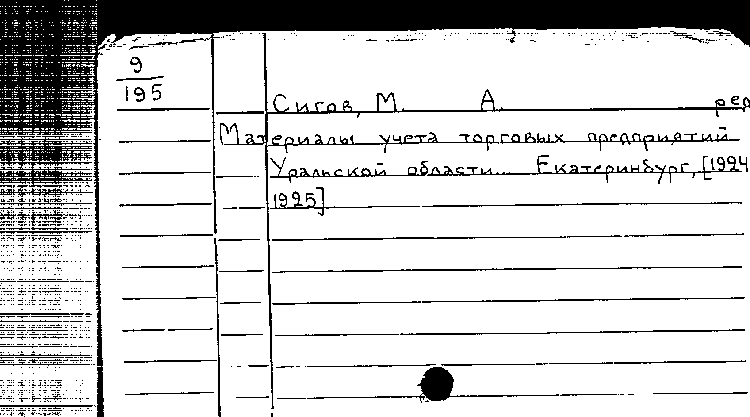 9
195
Сигов, М. А. ред
Материалы учета торговых предприятий
Уральской области... Екатеринбург, [1924
1925]